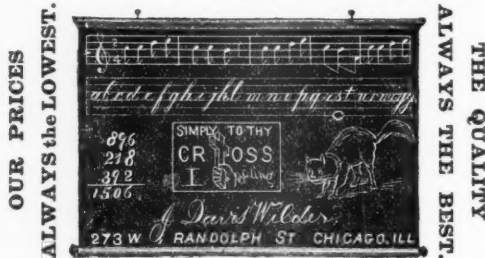 OUR PRICES
ALWAYS the LOWEST.
2
4
abcdefghijkl mnopqrstuvwxyz
896
218
392
1506
SIMPLY TO THY
CR OSS
I
J. Davis Wilder.
273 W. RANDOLPH ST CHICAGO, ILL
THE QUALITY
ALWAYS THE BEST.